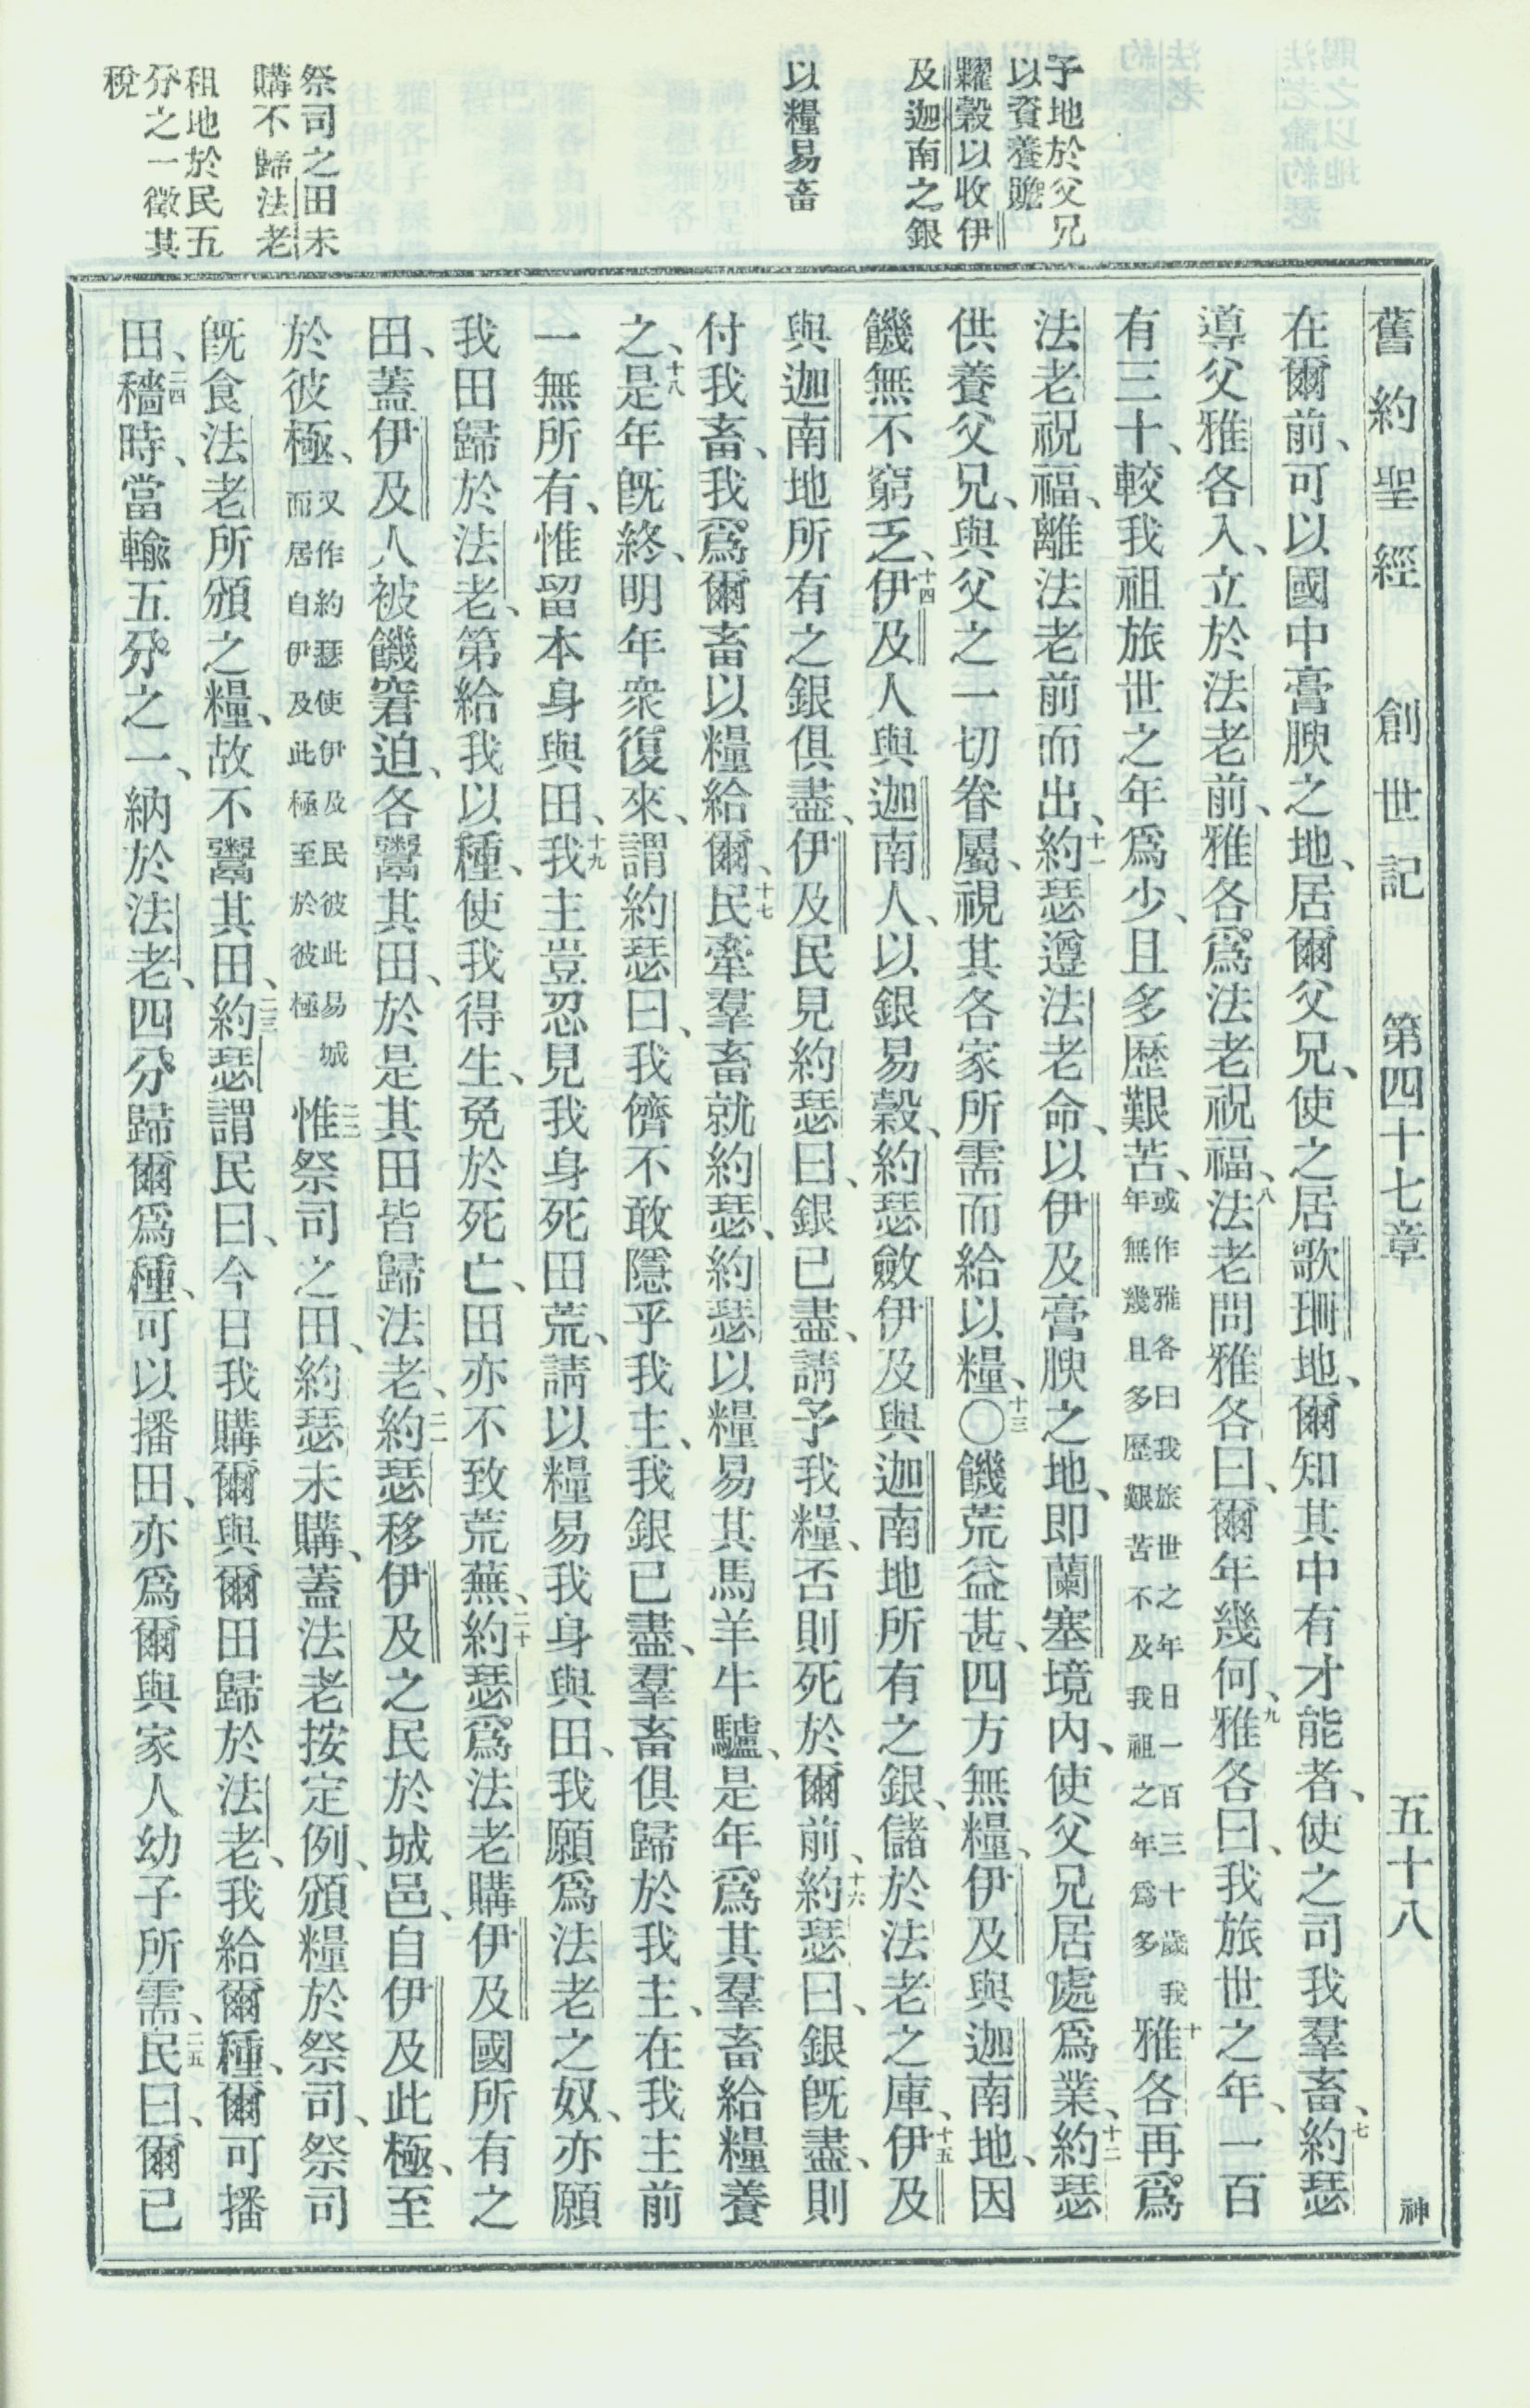 予地於父兄
以資養贍
糶穀以收伊
及迦南之銀
以糧易畜
祭司之田未
購不歸法老
租地於民五
分之一徵其
稅
舊約聖經 創世記 第四十七章 五十八 神
在爾前、可以國中膏腴之地、居爾父兄、使之居歌珊地、爾知其中有才能者、使之司我羣畜、七約瑟
導父雅各入、立於法老前、雅各爲法老祝福、八法老問雅各曰、爾年幾何、九雅各曰、我旅世之年、一百
有三十、較我祖旅世之年爲少、且多歷艱苦、或作雅各曰我旅世之年日一百三十歲我年無幾且多歷艱苦不及我祖之年爲多十雅各再爲
法老祝福、離法老前而出、十一約瑟遵法老命、以伊及膏腴之地、即蘭塞境內、使父兄居處爲業、十二約瑟
供養父兄、與父之一切眷屬、視其各家所需而給以糧、〇十三饑荒益甚、四方無糧、伊及與迦南地、因
饑無不窮乏、十四伊及人與迦南人、以銀易穀、約瑟斂伊及與迦南地所有之銀、儲於法老之庫、十五伊及
與迦南地所有之銀俱盡、伊及民見約瑟曰、銀已盡、請予我糧、否則死於爾前、十六約瑟曰、銀旣盡、則
付我畜、我爲爾畜以糧給爾、十七民牽羣畜就約瑟、約瑟以糧易其馬羊牛驢、是年爲其羣畜給糧養
之、十八是年旣終、明年衆復來、謂約瑟曰、我儕不敢隱乎我主、我銀已盡、羣畜俱歸於我主、在我主前
一無所有、惟留本身與田、十九我主豈忍見我身死田荒、請以糧易我身與田、我願爲法老之奴、亦願
我田歸於法老、第給我以種、使我得生、免於死亡、田亦不致荒蕪、二十約瑟爲法老購伊及國所有之
田、蓋伊及人被饑窘迫、各鬻其田、於是其田皆歸法老、二一約瑟移伊及之民於城邑、自伊及此極、至
於彼極、又作約瑟使伊及民彼此易城而居自伊及此極至於彼極二二惟祭司之田、約瑟未購、蓋法老按定例、頒糧於祭司、祭司
旣食法老所頒之糧、故不鬻其田、二三約瑟謂民曰、今日我購爾與爾田歸於法老、我給爾種、爾可播
田、二四穡時、當輸五分之一、納於法老、四分歸爾爲種、可以播田、亦爲爾與家人幼子所需、二五民曰、爾已